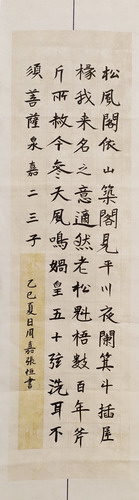 松風閣依山築閣見平川夜闌箕斗插屋
椽我来名之意適然老松魁梧數百年斧
斤所赦今參天風鳴媧皇五十弦洗耳不
須菩薩泉嘉二三子
乙巳夏日周嘉張恒書